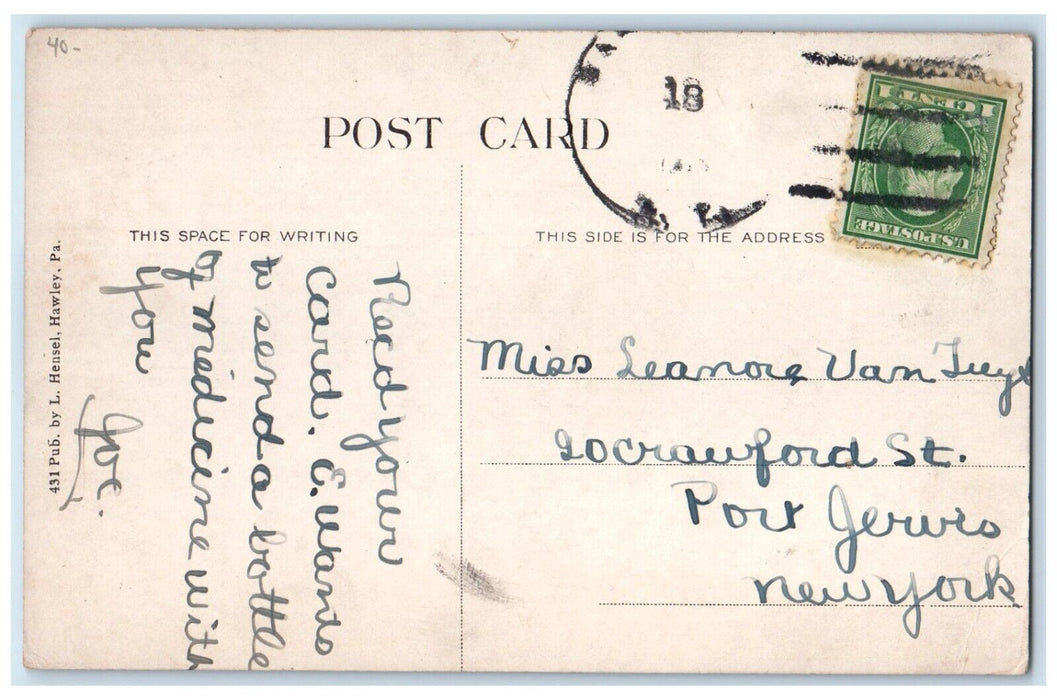 40-
POST CARD
18
1 CENT 1
U.S. POSTAGE
THIS SPACE FOR WRITING
THIS SIDE IS FOR THE ADDRESS
Recd your
card. E. wants
to send a bottle
of medicine with
you
Joe.
431 Pub. by L. Hensel, Hawley, Pa.
Miss Leanora Van Tuyl
20 Crawford St.
Port Jervis
New York